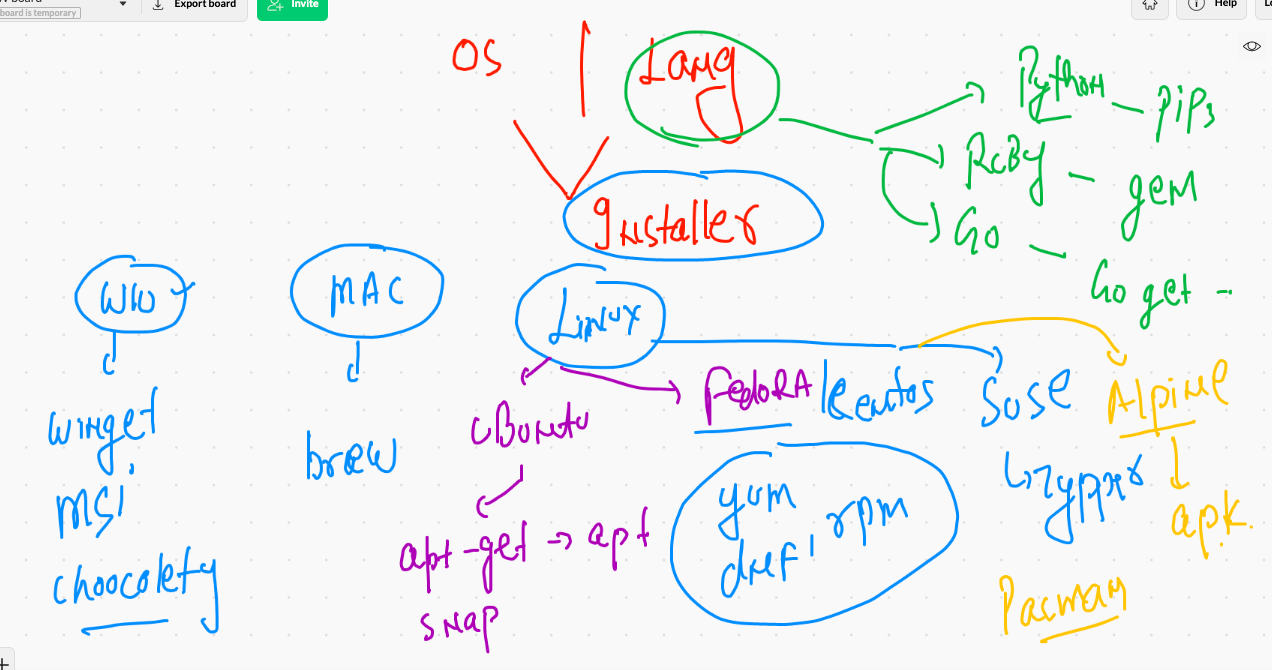 board is temporary
Export board
Invite
Help
OS
Lang
Python - pips
RuBy - gem
Go - Go get -
Installer
Win
MAC
Linux
winget,
MSI
choocolety
brew
UBuntu
apt-get -> apt
snap
FedoRA/Centos
yum
dnf, rpm
Suse
zypper
Alpine
apk.
Pacman